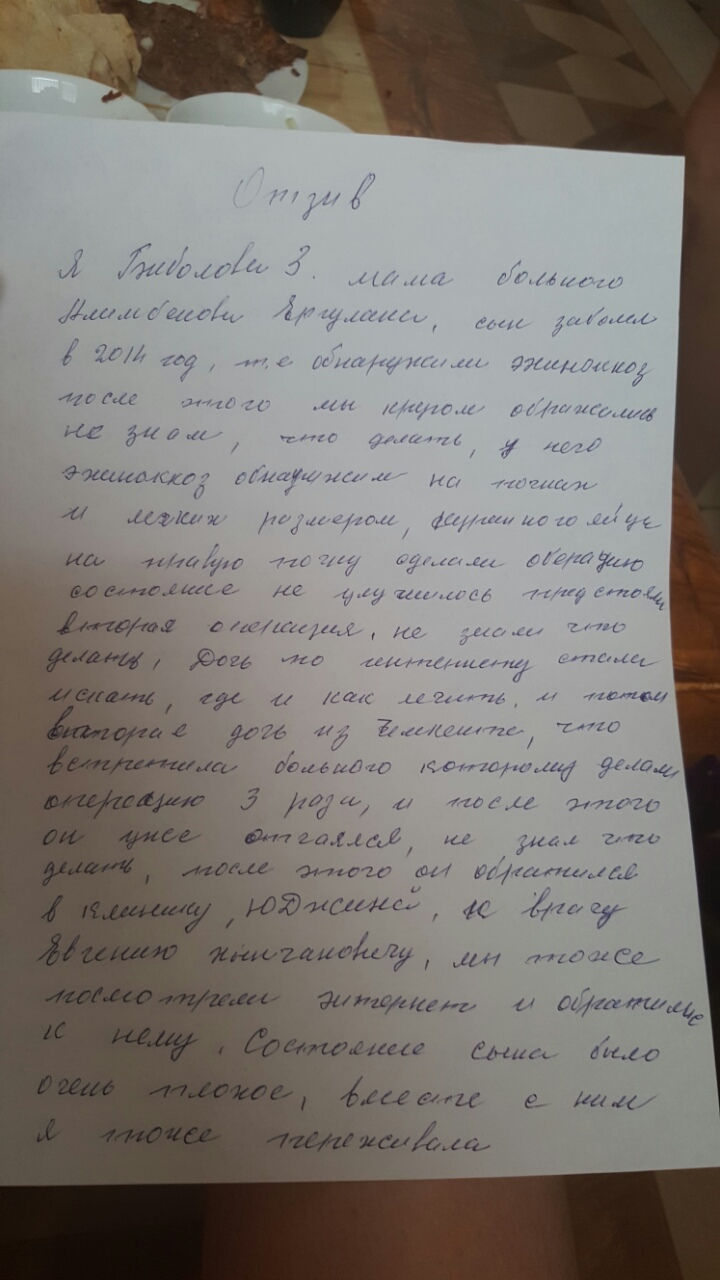 Отзив
Я Биболова З. мама больного
Алимбекова Ергулана, сын заболел
в 2014 год, т.е обнаружили эхиноккоз
после этого мы кругом ображались
не знам, что делать, у него
эхиноккоз обнаужили на почках
и легких размером, куриного яйце
на правую почку сделали оберацию
состояние не улучшилось предстояла
вторая операция, не знали что
делать, Дочь по интернету стала
искать, где и как лечить, и потом
вторае дочь из Чемкента, что
встретила больного которому делали
операцию 3 раза, и после этого
он уже отчаялся, не знал что
делать, после этого он обратился
в клинику, ЮДжиной, к врачу
Евгению, мы тоже
посмотрели энтернет и обратились
к нему. Состояние сына было
очень плохое, вместе с ним
я тоже переживала